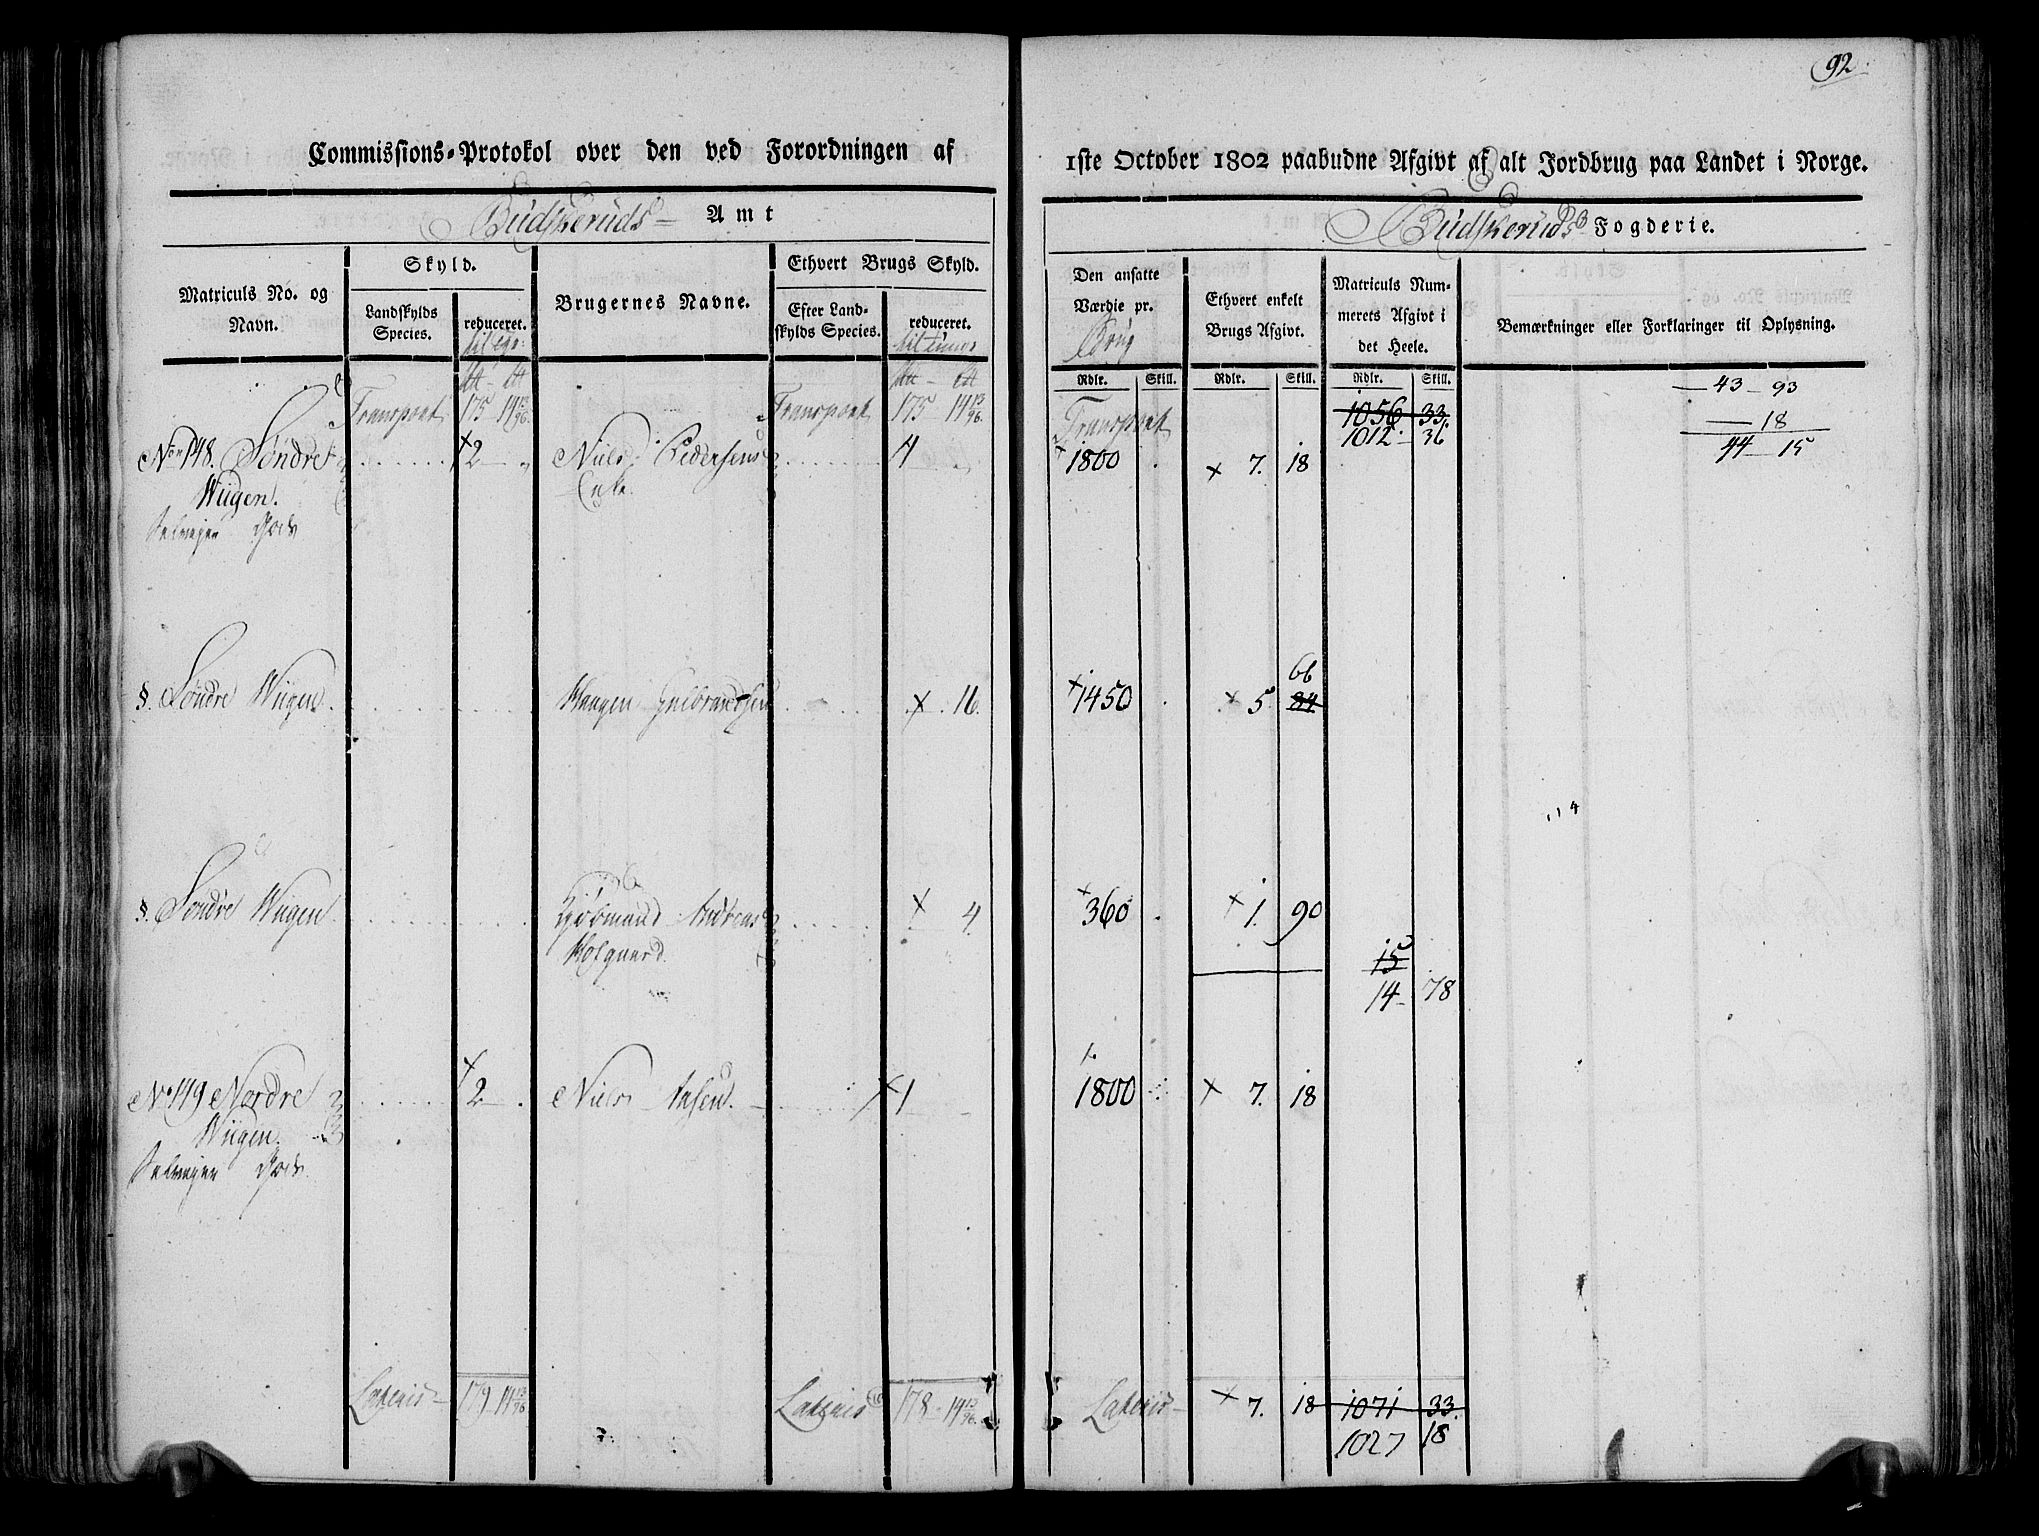 92.
Commissions-Protokol over den ved Forordningen af
1ste October 1802 paabudne Afgivt af alt Jordbrug paa Landet i Norge.
Budskeruds Amt
Budskeruds Fogderie.
Matriculs No. og Navn.
Skyld.
Landskylds Species.
reduceret.
Brugernes Navne.
Ethvert Brugs Skyld.
Efter Landskylds Species.
reduceret.
Den ansatte Værdie pr. Brug
Ethvert enkelt Brugs Afgivt.
Matriculs Nummerets Afgivt i det Heele.
Bemærkninger eller Forklaringer til Oplysning.
Rdlr. Skill. Rdlr. Skill. Rdlr. Skill.
Transport 175 14 13/96 Transport 175 14 13/96 Transport 1056 33. 43 – 93
1012. 36 – 18
44 – 15
No 148. Søndre 2 Niels Pedersens 1 1800 7. 18
Wiigen. Enke.
Selveyer Gods
§. Søndre Wiigen Gulbrandsen 16. 1450 5 84
66
§. Søndre Wiigen Andreas 4. 360 1. 90
15
14 – 78
No 149 Nordre 2 Niels 1 1800 7. 18
Wiigen.
Selveyer Gods.
Lateris 179 14 13/96 Lateris 178 14 13/96 Lateris 7. 18 1071 33.
1027 18